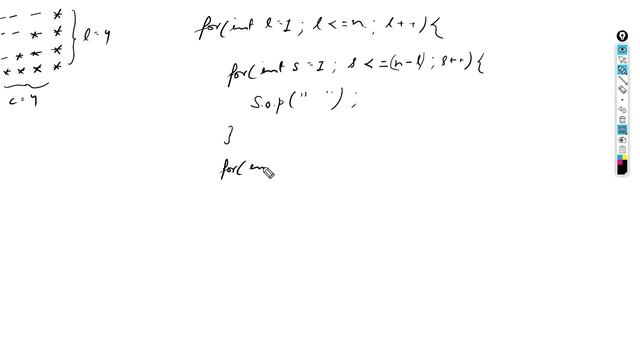 - - - *
- - * *
- * * *
* * * *
l=4
c=4
for(int l=1; l<=n; l++){
for(int s=1; s<=(n-l); s++){
S.o.p(" ");
}
for(in